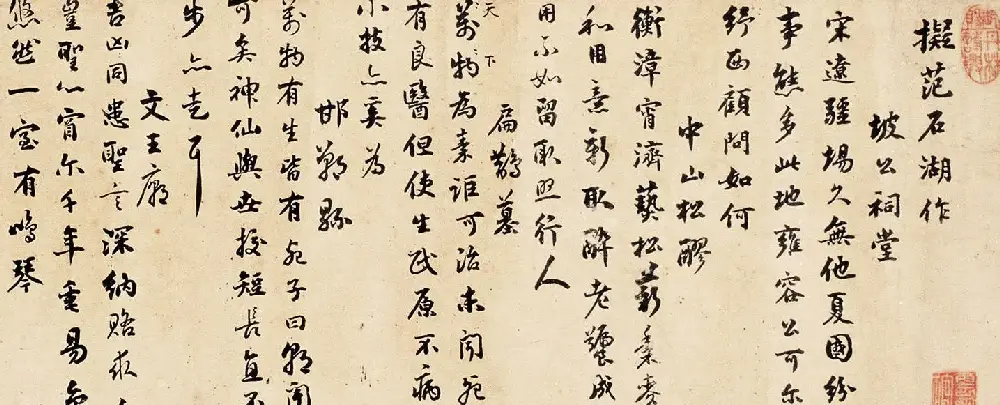 擬范石湖作
坡公祠堂
宋遼疆場久無他夏國紛
事態多此地雍容公可尔
西顧問如何
中山松醪
衡漳宵濟藝松薪黍麥
和用意新取醉老饕成
用不如留取照行人
扁鵲墓
天下
萬物為誰可治未聞死
有良醫但使生民原不病
小技亦奚為
邯鄲縣
萬物有生皆有死子曰朝聞
可矣神仙與世短長直不
步亦走耳
文王廟
吉凶同患聖言深納賂求
豈聖心當尔千年重易
悠然一室有鳴琴